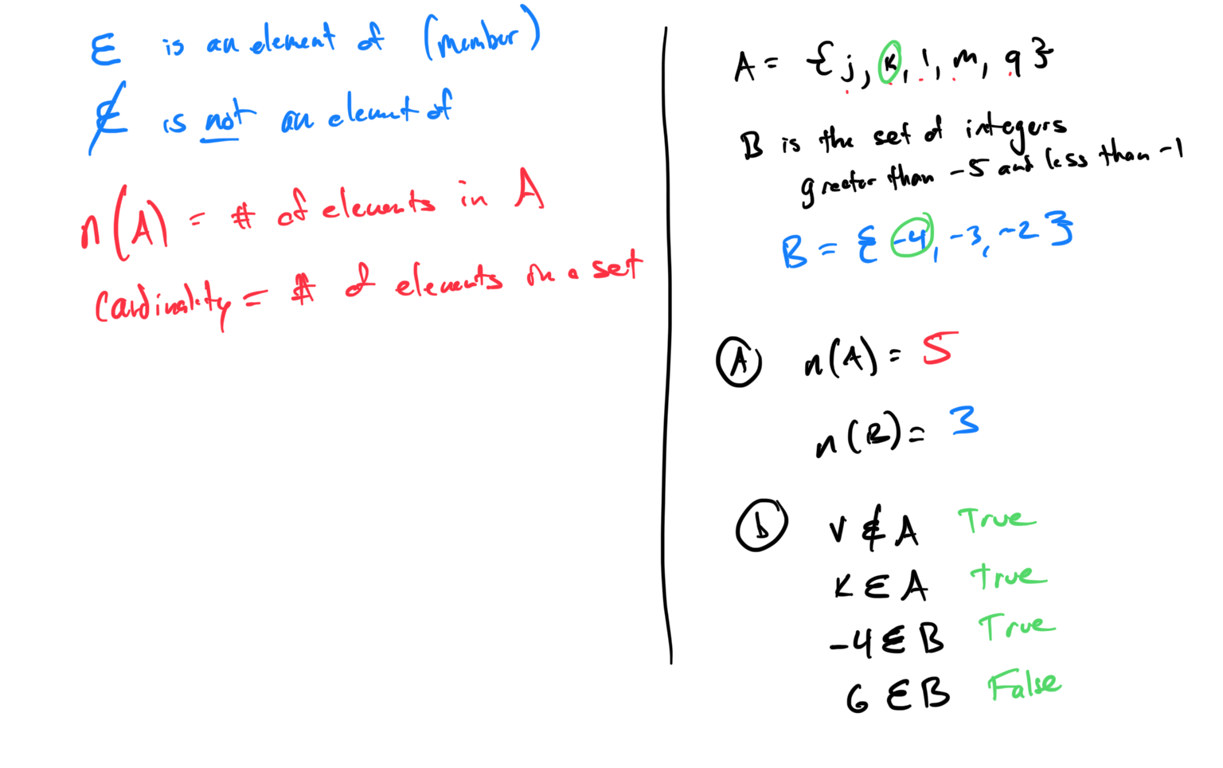 ∈ is an element of (member)
∉ is not an element of
n(A) = # of elements in A
Cardinality = # of elements in a set
A = {j, k, l, m, q}
B is the set of integers
greater than -5 and less than -1
B = {-4, -3, -2}
A n(A) = 5
n(B) = 3
b v ∉ A True
k ∈ A True
-4 ∈ B True
6 ∈ B False